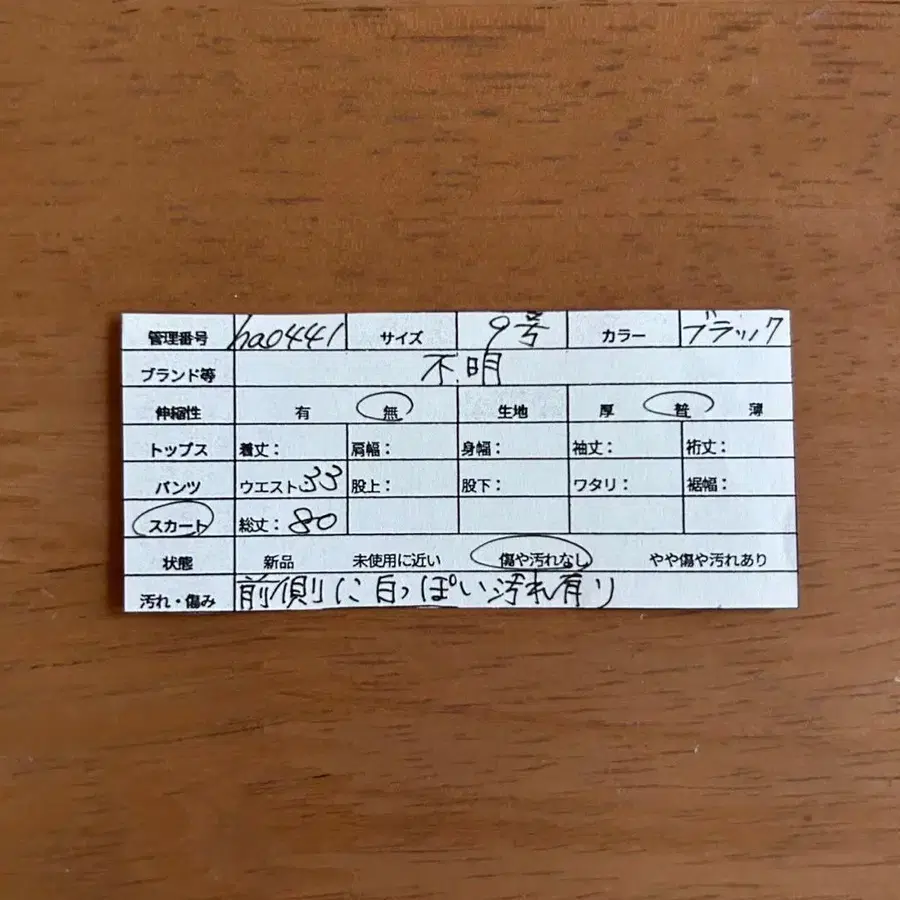 管理番号 ha0441 サイズ 9号 カラー ブラック
ブランド等 不明
伸縮性 有 無 生地 厚 普 薄
トップス 着丈： 肩幅： 身幅： 袖丈： 裄丈：
パンツ ウエスト33 股上： 股下： ワタリ： 裾幅：
スカート 総丈：80
状態 新品 未使用に近い 傷や汚れなし やや傷や汚れあり
汚れ・傷み 前側に白っぽい汚れ有り